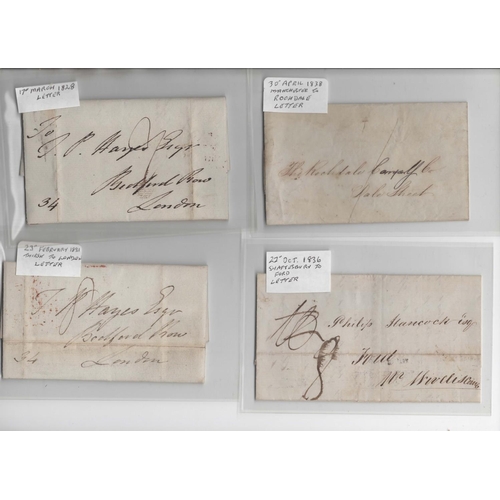 17th MARCH 1828
LETTER
To
T. P. Hayes Esqr
Bedford Row
London
34
30th APRIL 1838
ROCHDALE
LETTER
The Rochdale Co
Dale Street
23rd FEBRUARY 1831
TO LONDON
LETTER
Hayes Esqr
Bedford Row
London
34
22nd OCT. 1836
SHAFTESBURY TO
FORD
LETTER
Philip Hancock Esq
Ford
Nr
8